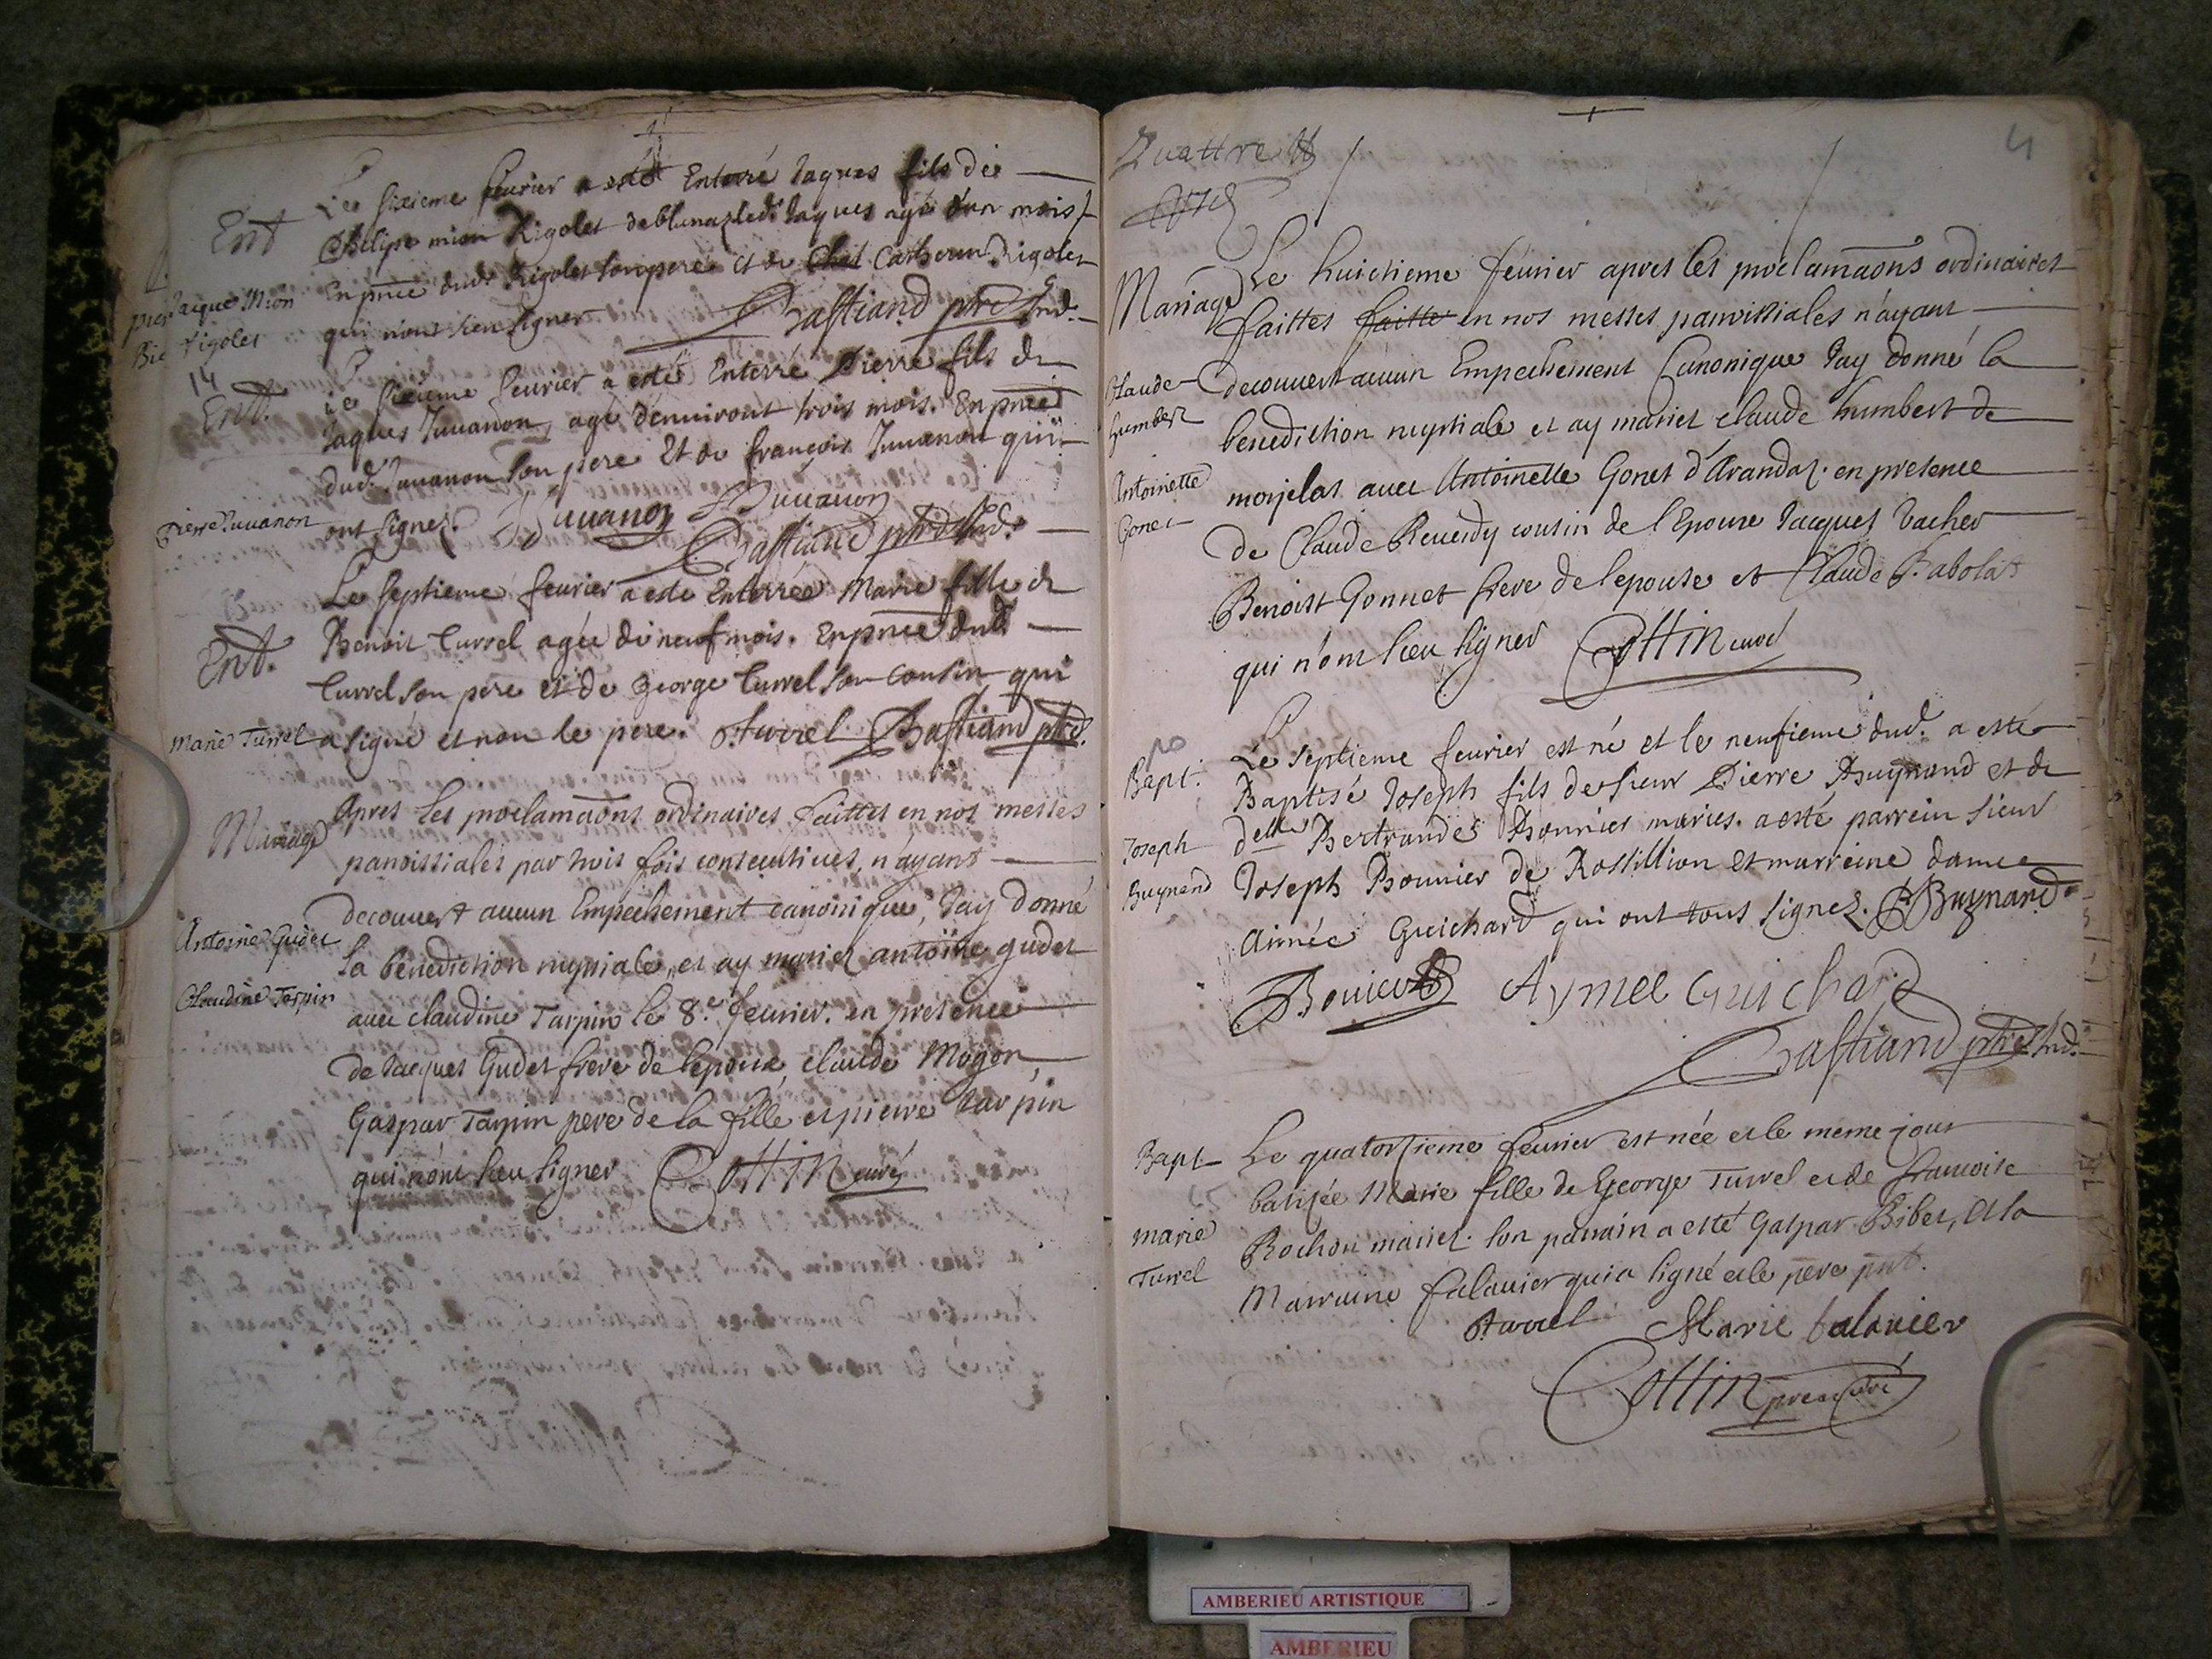 Ent
Le sixieme feurier a esté Enterré Jaques fils de
Philipe mion Rigolet de blanaz led. Jaques agé d'un mois
Jaque Mion
Rigolet
En pnce dud. Rigolet son pere et de Catherin Rigolet
qui n'ont sceu signer Bastiand ptre Ind.
14
Ent.
Le sixieme feurier a esté Enterré Pierre fils de
Jaques Juuanon, agé d'enuiront trois mois. En pnce
dud. Juuanon son pere Et de françois Juuanon qui
Pierre Juuanon
ont signez. J Juuanon Juuanon
Bastiand ptre Ind.
Le septieme feurier a esté Enterrée Marie fille de
Ent.
Benoit Turrel agée de neuf mois. En pnce dud.
Turrel son pere et de george Turrel son Cousin qui
Marie Turrel
a signé et non le pere. Turrel Bastiand ptre.
Mariage
Apres les proclamaons ordinaires faittes en nos messes
paroissiales par trois fois consecutiues, n'ayant
decouuert aucun Empechement canonique, Jay donné
Antoine Gudet
la benediction nuptiale, et ay mariez antoine gudet
Claudine Tarpin
auec claudine Tarpin le 8.e feurier. en presence
de Jacques Gudet frere de lepoux, claude Moyon,
Gaspar Tarpin pere de la fille et pierre Tarpin
qui n'ont sceu signer Cottin curé
Quattre
4
Mariage
Le huictieme feurier apres les proclamaons ordinaires
faittes faitte en nos messes parroissiales n'ayant
Claude
humbert
decouuert aucun Empechement Canonique Jay donné la
benediction nuptiale et ay mariez claude humbert de
Antoinette
Gonet
morjelas auec Antoinette Gonet d'Arandaz. en presence
de Claude Reuerdy cousin de l'Epoux Jacques Vacher
Benoist Gonnet frere de lepouse et Claude Babolat
qui n'ont sceu signer Cottin curé
Bapt.
Le septieme feurier est né et le neufieme dud. a esté
Baptisé Joseph fils de sieur Pierre Buynand et de
Joseph
Buynand
delle Bertrande Bonnier maries. a esté parrein sieur
Joseph Bonnier de Rossillion et marreine dame
Aimée Guichard qui ont tous signez. Buynand
Bonier Aymee Guichard
Bastiand ptre Ind.
Bapt
Le quatorsieme feurier est née et le meme jour
batisée Marie fille de George Turrel et de francoise
marie
Turrel
Rochon mariez. son parrain a esté Gaspar Bibet, et la
Marraine falauier qui a signé et le pere pnt.
Turrel Marie falauier
Cottin curé
AMBERIEU ARTISTIQUE
AMBERIEU